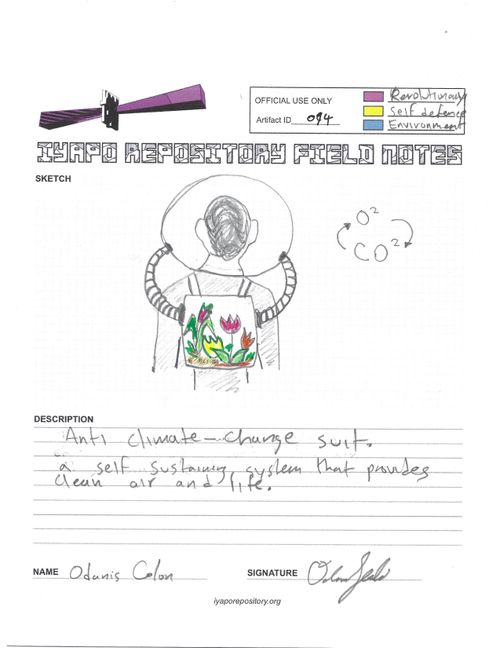 OFFICIAL USE ONLY
Artifact ID 094
Revolutionary
Self defence
Environment
IYAPO REPOSITORY FIELD NOTES
SKETCH
O²
CO²
DESCRIPTION
Anti climate-change suit.
a self sustaining system that provides
clean air and life.
NAME Odanis Colon
SIGNATURE
iyaporepository.org